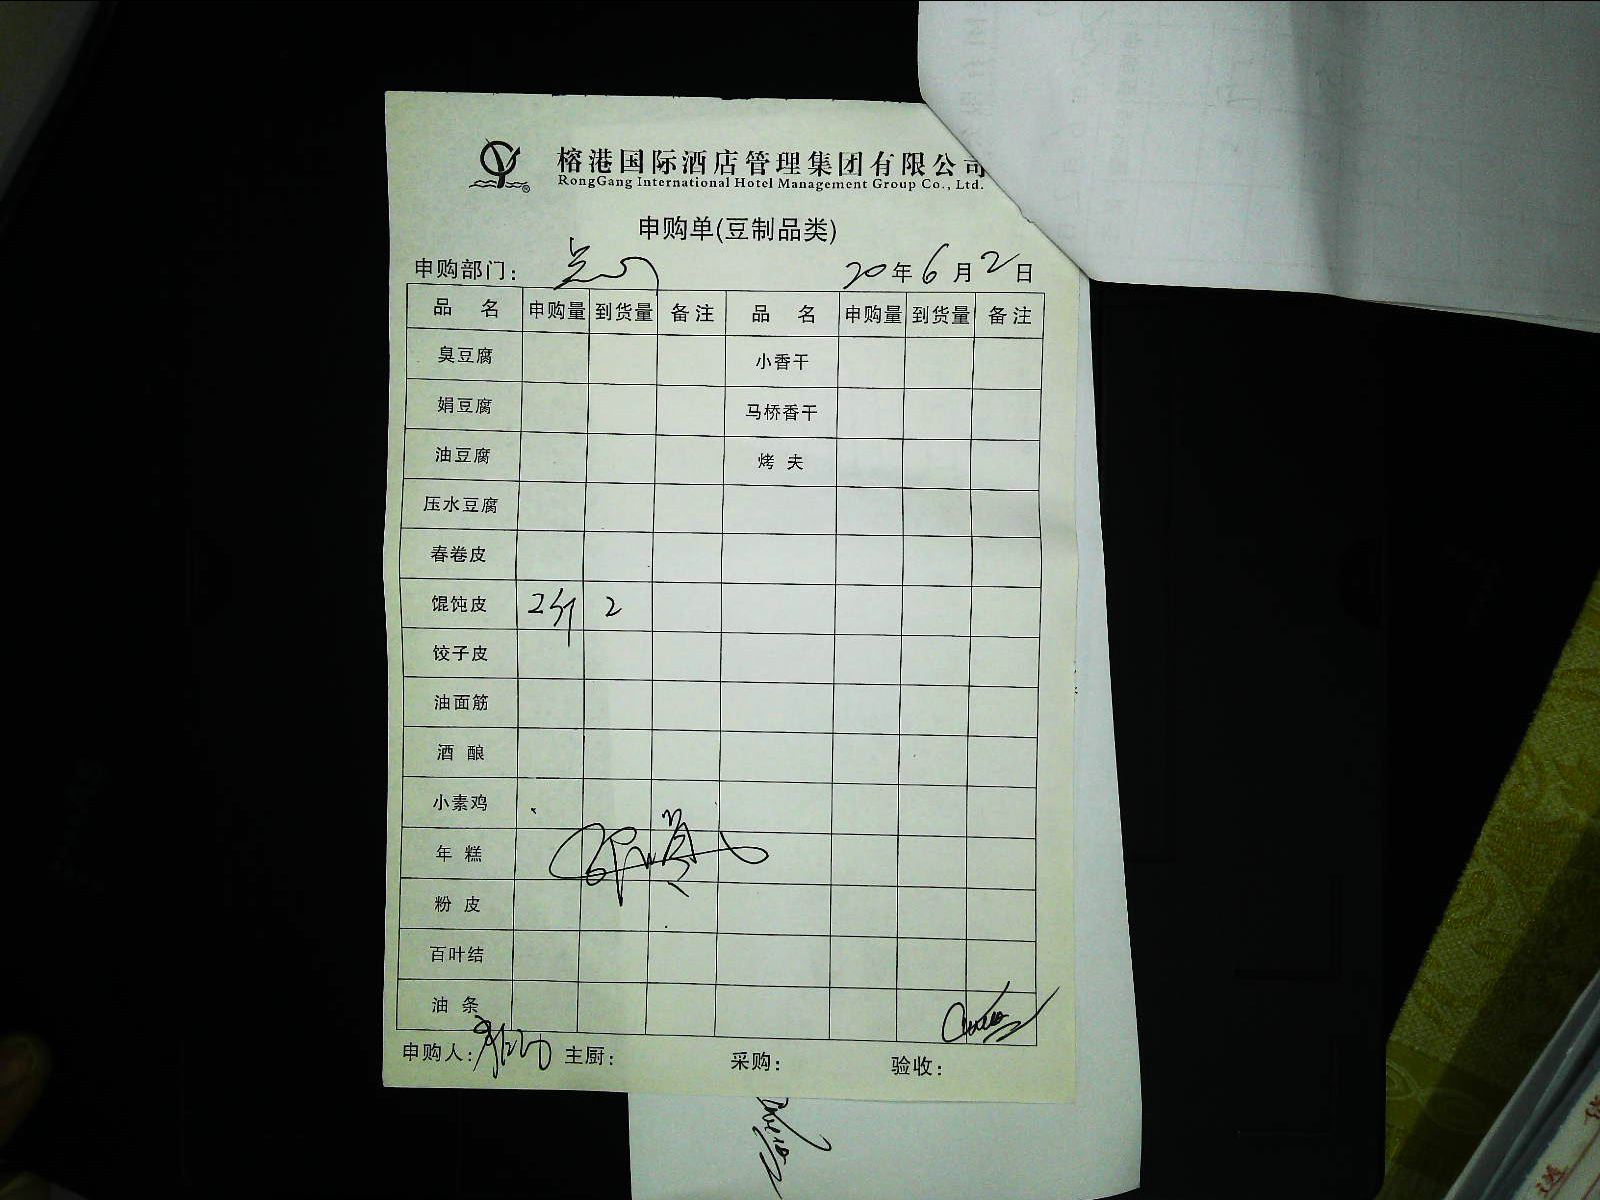 榕港国际酒店管理集团有限公司
RongGang International Hotel Management Group Co., Ltd.
申购单(豆制品类)
申购部门： 点心 20年6月2日
品 名 申购量 到货量 备注 品 名 申购量 到货量 备注
臭豆腐 小香干
娟豆腐 马桥香干
油豆腐 烤 夫
压水豆腐
春卷皮
馄饨皮 2斤 2
饺子皮
油面筋
酒 酿
小素鸡
年 糕
粉 皮
百叶结
油 条
申购人： 主厨： 采购： 验收：